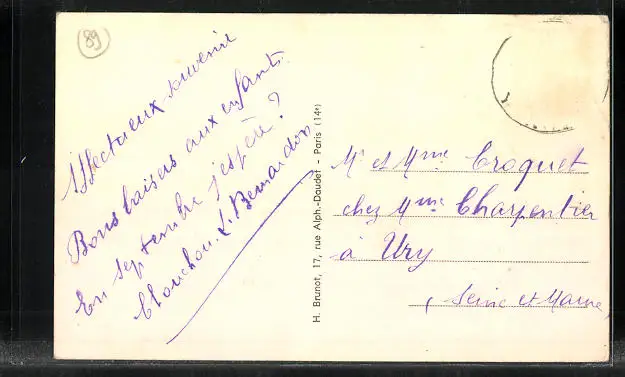 89
Affectueux souvenir
Bons baisers aux enfants
En septembre j'espère ?
L. Bernardon
H. Brunot, 17, rue Alph.-Daudet - Paris (14e)
Mr et Mme Croquet
chez Mme Charpentier
à Ury
(Seine et Marne)